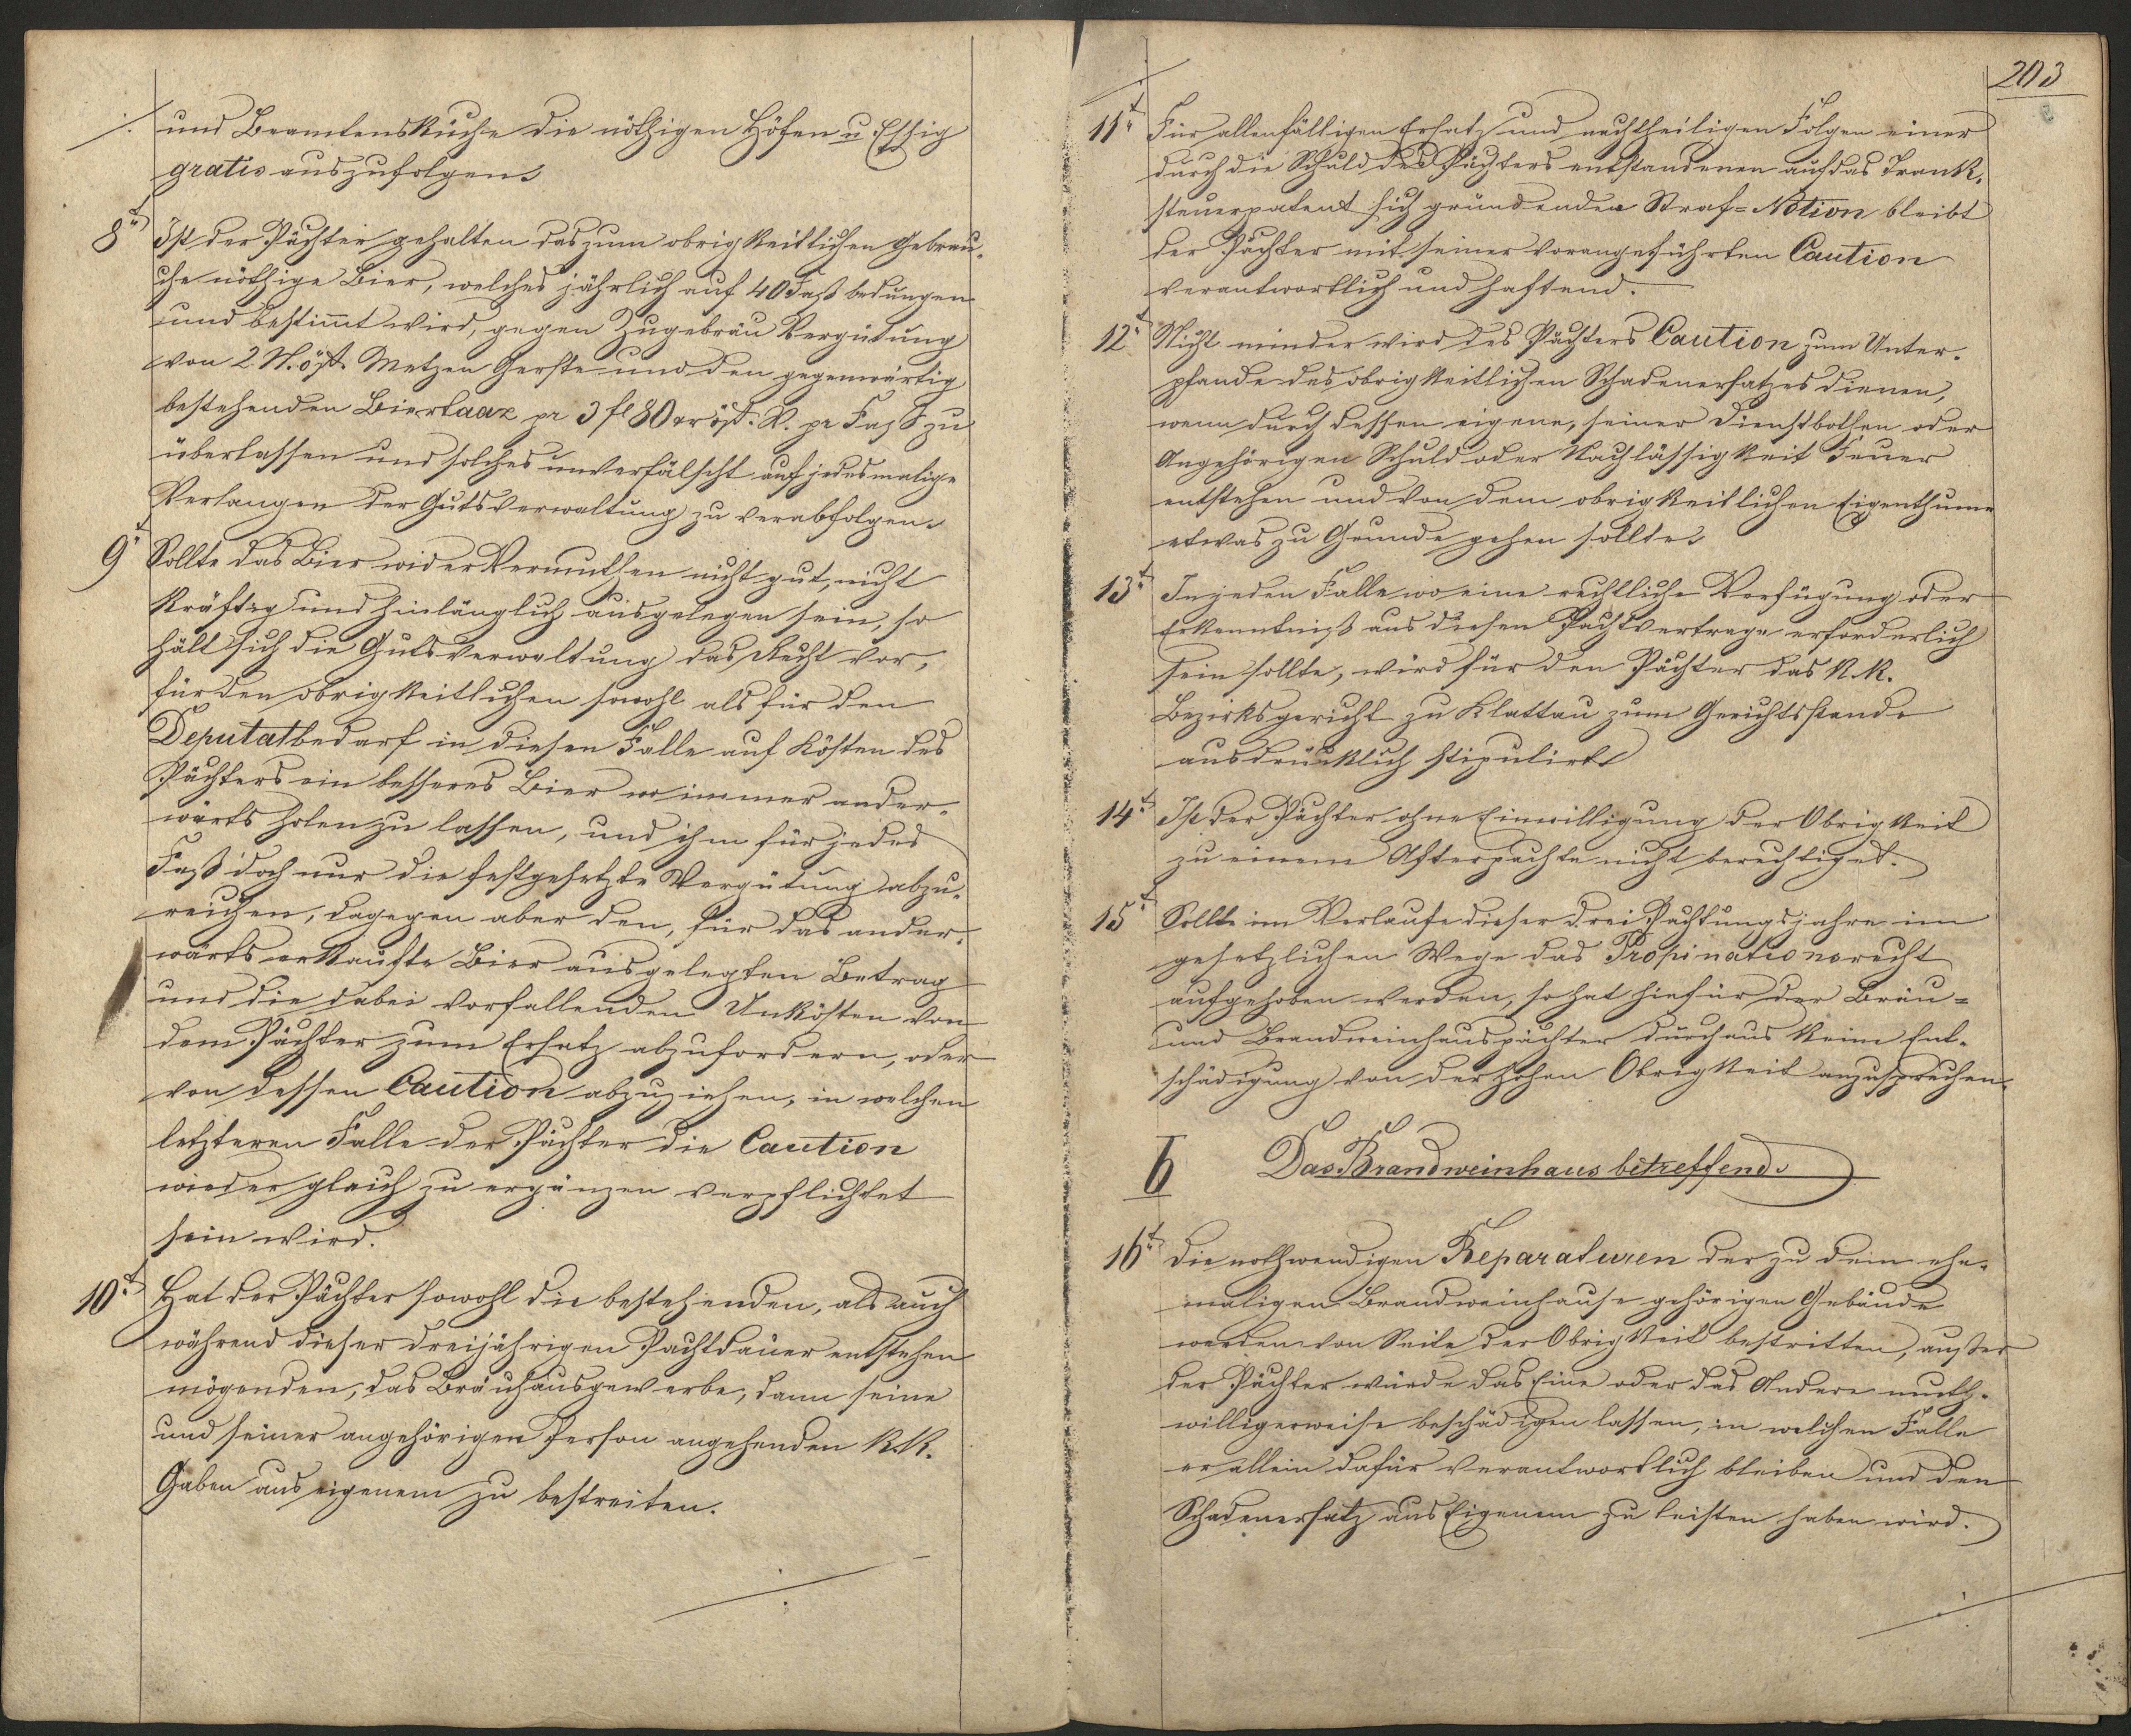 und Beamtensküche die nöthigen Höfen u Essig
gratis auszufolgen.
8t Ist der Pächter gehalten das zum obrigkeitlichen Gebrau-
che nöthige Bier, welches jährlich auf 40 Faß bedungen
und bestimt wird, gegen Zugebräu Vergütung
von 2 N. öst. Metzen Gerste und den gegenwärtig
bestehenden Biertaaz pr 3 fl 80 xr öst. W. pr Faß zu
überlassen und solches unverfälscht auf jedesmalige
Verlangen der Gutsverwaltung zu verabfolgen.
9t Sollte das Bier wider Vermuthen nicht gut, nicht
kräftig und hinlänglich ausgelegen sein, so
hält sich die Gutsverwaltung das Recht vor,
für den obrigkeitlichen sowohl als für den
Deputatbedarf in diesen Falle auf Kösten des
Pächters ein besseres Bier wo immer ander-
wärts holen zu lassen, und ihm für jedes
Faß doch nur die festgesetzte Vergütung abzu-
reichen, dagegen aber den, für das ander-
wärts erkaufte Bier ausgelegten Betrag
und die dabei vorfallenden Unkösten von
dem Pächter zum Ersatz abzufordern, oder
von dessen Caution abzuziehen, in welchen
letzteren Falle der Pächter die Caution
wieder gleich zu ergänzen verpflichtet
sein wird.
10t Hat der Pächter sowohl die bestehenden, als auch
während dieser dreijährigen Pachtdauer entstehen
mögenden, das Bräuhausgewerbe, dann seine
und seiner angehörigen Person angehenden k. k.
Gaben aus eigenem zu bestreiten.
203
11t Für allenfälligen Ersatz und nachtheiligen Folgen einer
durch die Schuld des Pächters entstandenen auf das Trank-
steuerpatent sich gründenden Straf=Notion bleibt
der Pächter mit seiner vorangeführten Caution
verantwortlich und haftend.
12t Nicht minder wird des Pächters Caution zum Unter-
pfande des obrigkeitlichen Schadenersatzes dienen,
wenn durch dessen eigene, seiner Dienstbothen oder
Angehörigen Schuld oder Nachlässigkeit Feuer
entstehen und von dem obrigkeitlichen Eigenthume
etwas zu Grunde gehen sollte.
13t In jeden Falle wo eine rechtliche Verfügung oder
Erkenntniß aus diesen Pachtvertrage erforderlich
sein sollte, wird für den Pächter das k. k.
Bezirksgericht zu Klattau zum Gerichtsstande
ausdrücklich stipulirt.
14t Ist der Pächter ohne Einwilligung der Obrigkeit
zu einem Afterpachte nicht berechtiget.
15t Sollte im Verlaufe dieser drei Pachtungsjahre im
gesetzlichen Wege das Propinationsrecht
aufgehoben werden, so hat hiefür der Bräu=
und Brandweinhauspächter durchaus keine Ent-
schädigung von der hohen Obrigkeit anzusprechen.
b Das Brandweinhaus betreffend.
16t Die nothwendigen Reparaturen der zu dem ehe-
maligen Brandweinhause gehörigen Gebäude
werden von Seite der Obrigkeit bestritten, außer
der Pächter würde das Eine oder das Andere muth-
willigerweise beschädigen lassen, in welchen Falle
er allein dafür verantwortlich bleiben und den
Schadenersatz aus Eigenem zu leisten haben wird.